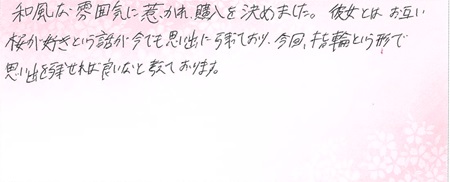 和風な雰囲気に惹かれ、購入を決めました。彼女とは お互い
桜が好きという話が今でも思い出に残っており、今回、指輪という形で
思い出を残せれば良いなと考えております。